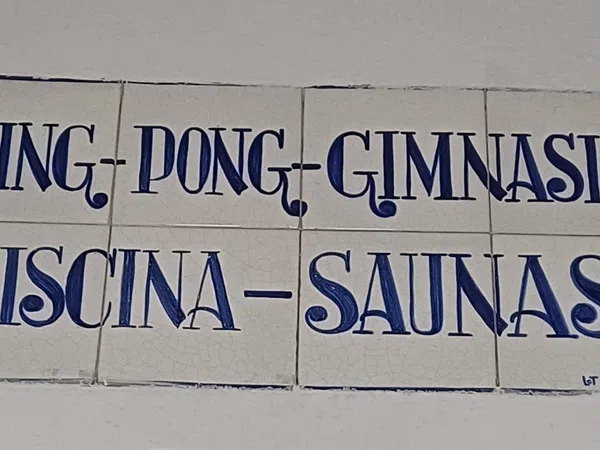 ING-PONG-GIMNASI
ISCINA-SAUNAS
LOT